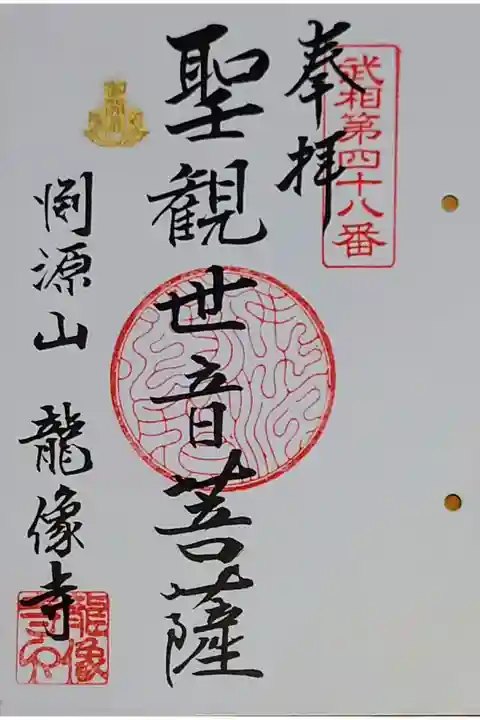 武相第四十八番
奉拝
聖観世音菩薩
淵源山 龍像寺
龍像寺印